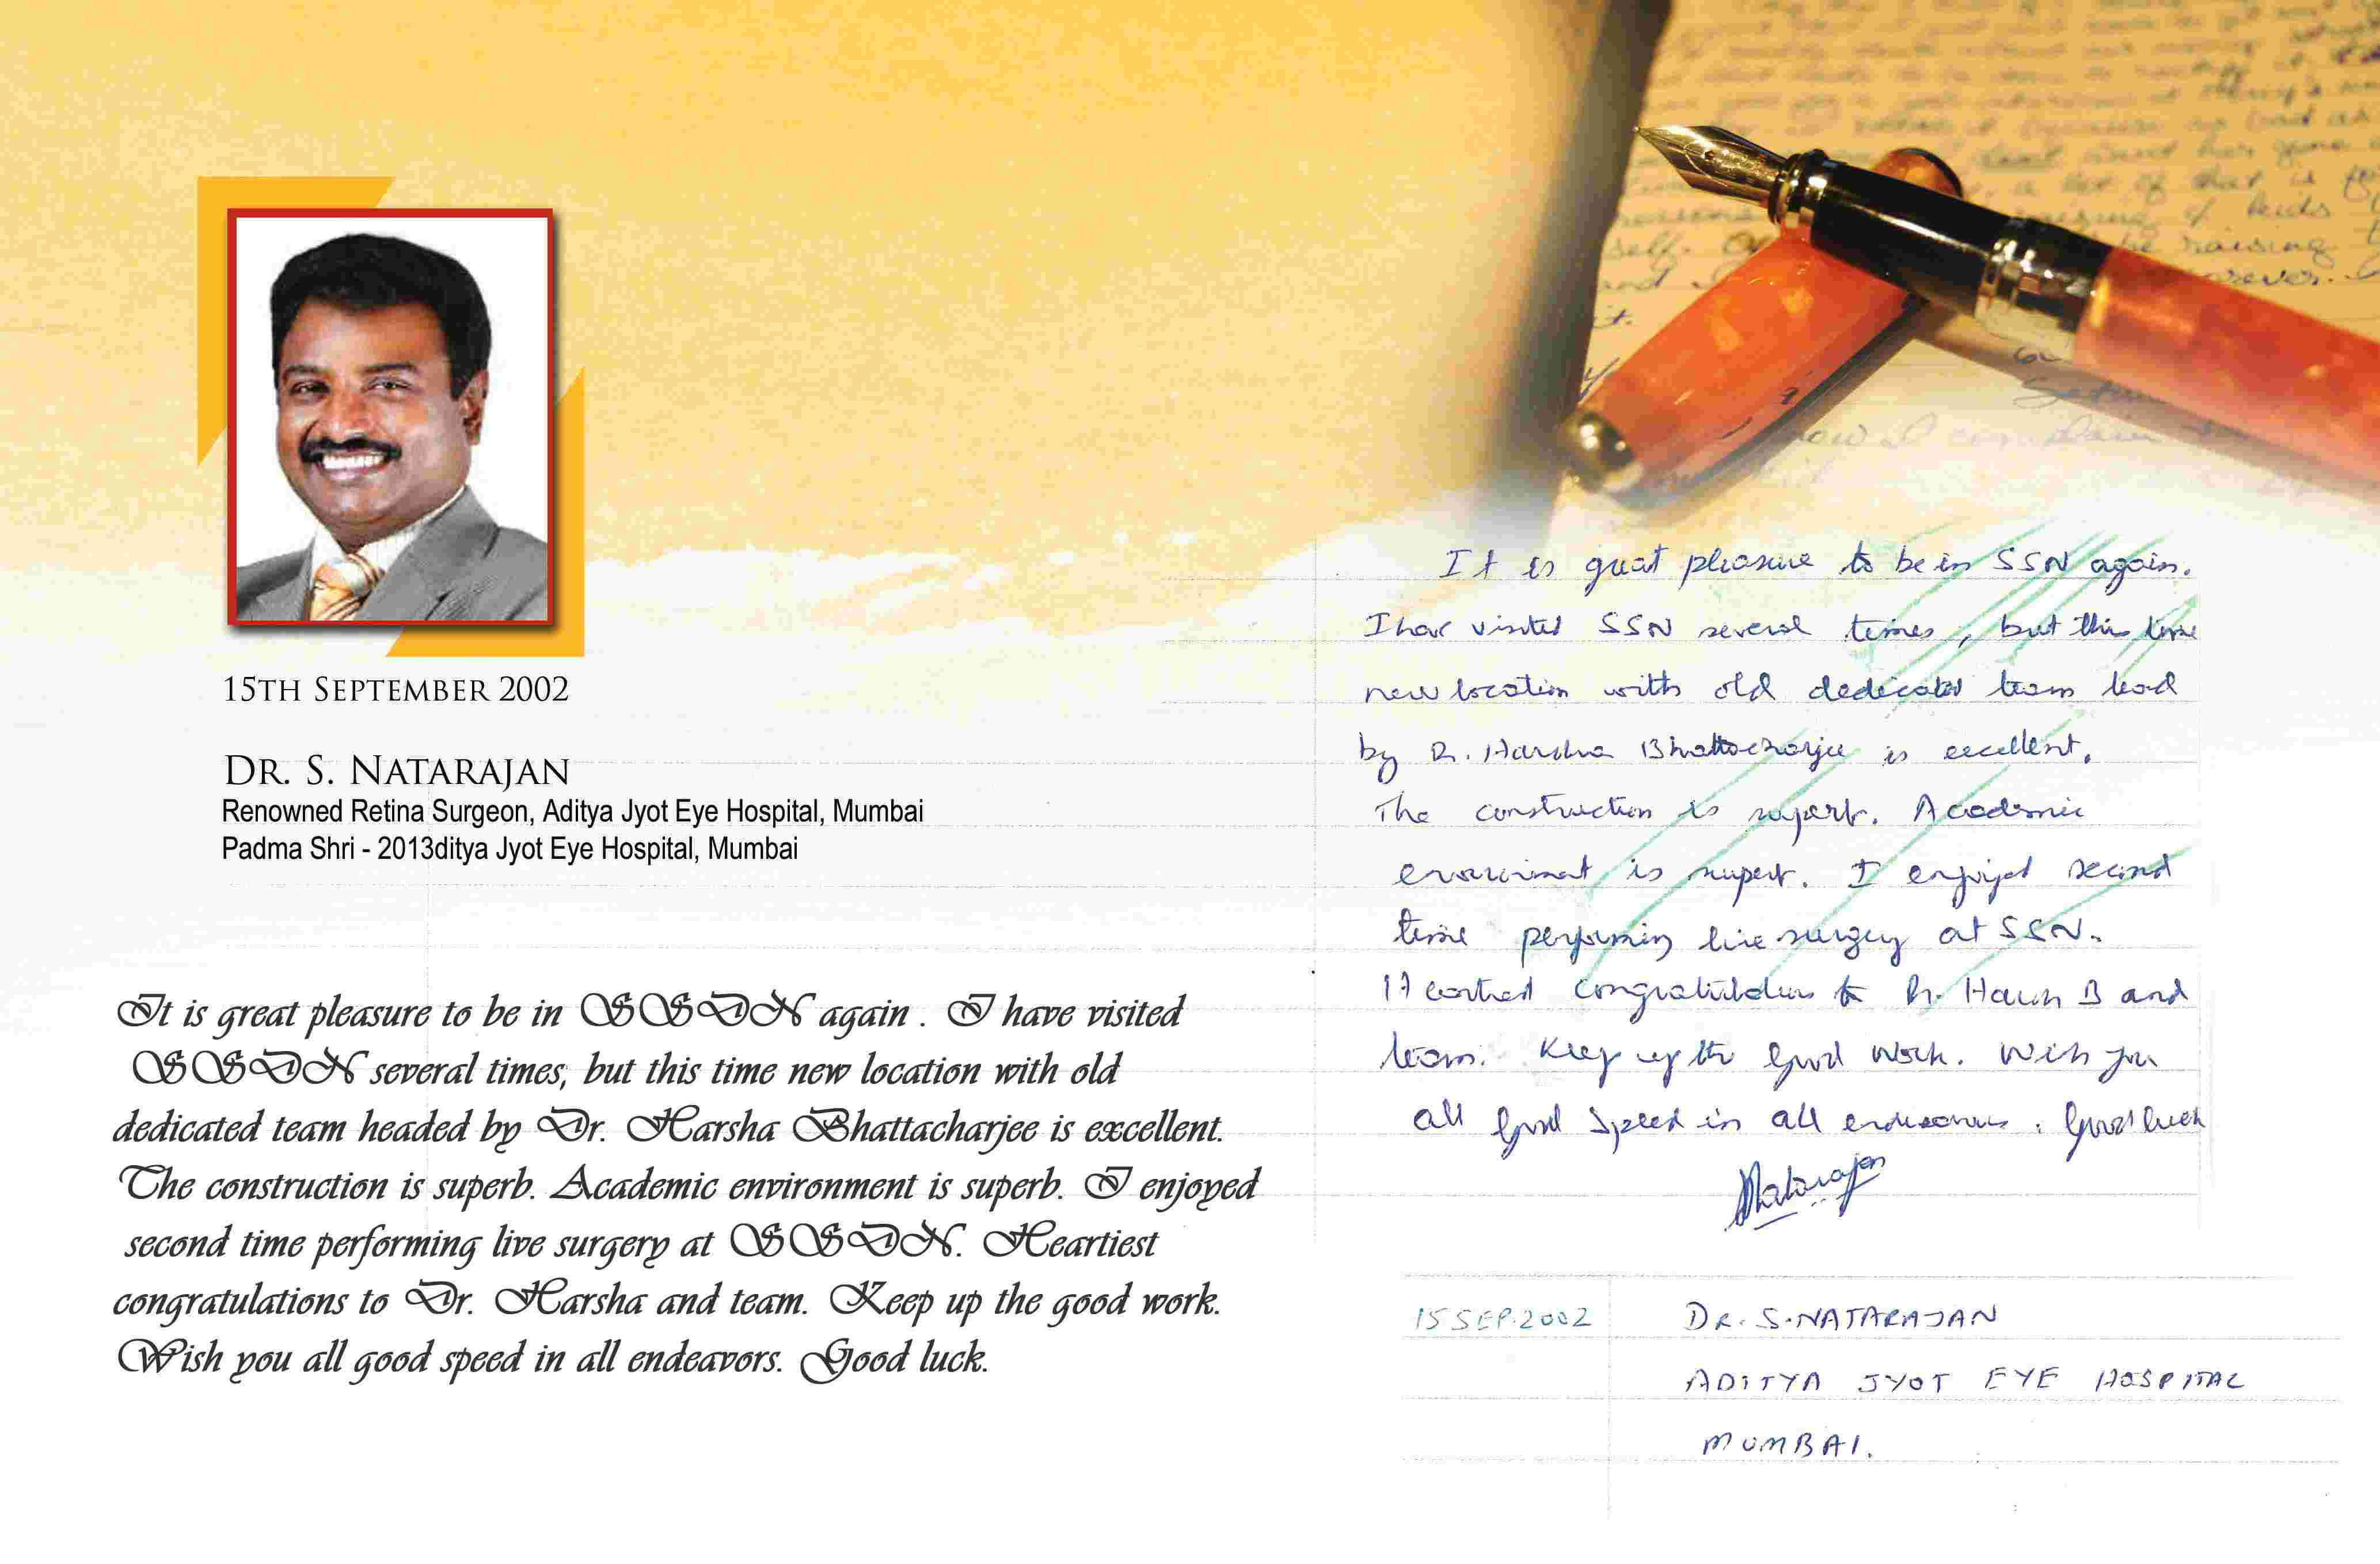 15TH SEPTEMBER 2002
DR. S. NATARAJAN
Renowned Retina Surgeon, Aditya Jyot Eye Hospital, Mumbai
Padma Shri - 2013ditya Jyot Eye Hospital, Mumbai
It is great pleasure to be in SSDN again . I have visited
SSDN several times, but this time new location with old
dedicated team headed by Dr. Harsha Bhattacharjee is excellent.
The construction is superb. Academic environment is superb. I enjoyed
second time performing live surgery at SSDN. Heartiest
congratulations to Dr. Harsha and team. Keep up the good work.
Wish you all good speed in all endeavors. Good luck.
It is great pleasure to be in SSN again.
I have visited SSN several times, but this time
new location with old dedicated team lead
by Dr. Harsha Bhattacharjee is excellent.
The construction is superb. Academic
environment is superb. I enjoyed second
time performing live surgery at SSN.
Heartiest congratulations to Dr. Harsh B and
team. Keep up the good work. Wish you
all good speed in all endeavours. Good luck
SNatarajan
15 SEP.2002
DR. S.NATARAJAN
ADITYA JYOT EYE HOSPITAL
MUMBAI.